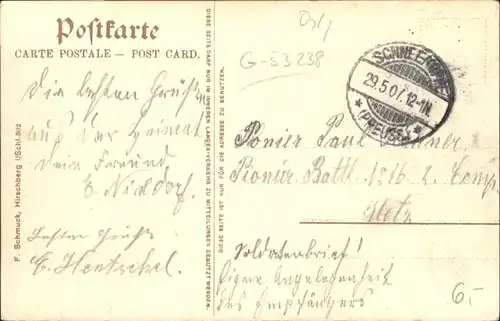 Postkarte
CARTE POSTALE — POST CARD.
Die besten Grüße
aus der Heimat
Dein Freund
E. Nixdorf.
Besten Gruß
E. Hentschel.
F. Schmuck, Hirschberg i/Schl.
DIESE SEITE DARF NUR IM INNEREN LANDES-VERKEHR ZU MITTEILUNGEN BENUTZT WERDEN.
DIESE SEITE IST NUR FÜR DIE ADRESSE ZU BENUTZEN.
G-53238
SCHNEEKOPPE
29.5.07. 12-1N.
*(PREUSS.)*
Pionier Paul
Pionier Batl. No 16 2. Comp
Metz
Soldatenbrief!
Eigene Angelegenheit
des Empfängers
6.-